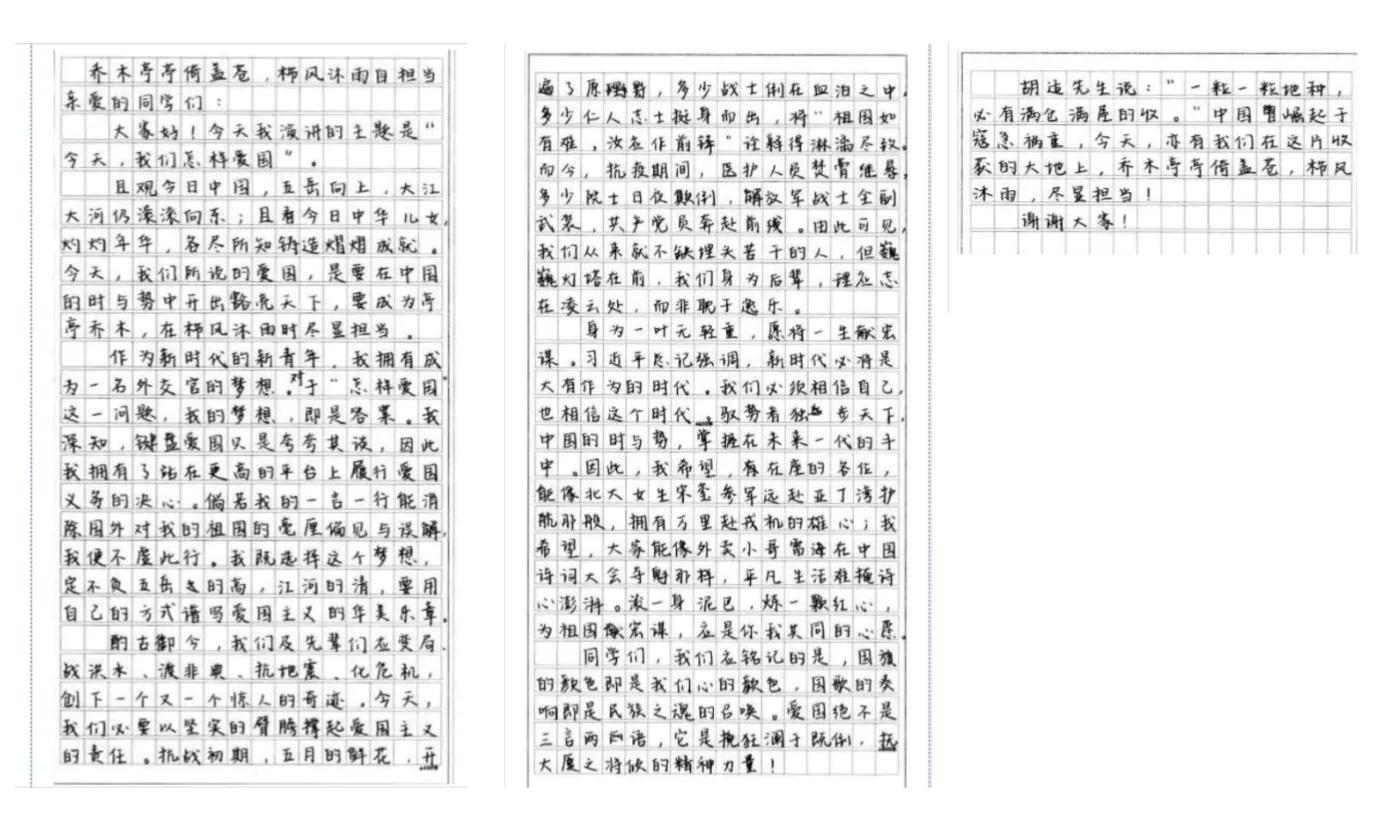 乔木亭亭倚盖苍，栉风沐雨自担当
亲爱的同学们：
大家好！今天我演讲的主题是“
今天，我们怎样爱国”。
且观今日中国，五岳向上，大江
大河仍滚滚向东；且看今日中华儿女，
灼灼年华，各尽所知铸造熠熠成就。
今天，我们所说的爱国，是要在中国
的时与势中开出豁亮天下，要成为亭
亭乔木，在栉风沐雨时尽显担当。
作为新时代的新青年，我拥有成
为一名外交官的梦想。对于“怎样爱国”
这一问题，我的梦想，即是答案。我
深知，键盘爱国只是夸夸其谈，因此
我拥有了站在更高的平台上履行爱国
义务的决心。倘若我的一言一行能消
除国外对我的祖国的毫厘偏见与误解，
我便不虚此行。我既选择这个梦想，
定不负五岳的高，江河的清，要用
自己的方式谱写爱国主义的华美乐章。
酌古御今，我们及先辈们应变局、
战洪水、渡非典、抗地震、化危机，
创下一个又一个惊人的奇迹。今天，
我们必要以坚实的臂膀撑起爱国主义
的责任。抗战初期，五月的鲜花，开
遍了原野，多少战士倒在血泊之中，
多少仁人志士挺身而出，将“祖国如
有难，汝应作前锋”诠释得淋漓尽致。
而今，抗疫期间，医护人员焚膏继晷，
多少院士日夜颠倒，解放军战士全副
武装，共产党员奔赴前线。由此可见，
我们从来就不缺埋头苦干的人，但巍
巍灯塔在前，我们身为后辈，理应志
在凌云处，而非耽于逸乐。
身为一叶无轻重，愿将一生献宏
谋。习近平总记强调，新时代必将是
大有作为的时代。我们必须相信自己，
也相信这个时代。驭势者独步天下，
中国的时与势，掌握在未来一代的手
中。因此，我希望，有在座的各位，
能像北大女生宋玺参军远赴亚丁湾护
航那般，拥有万里赴戎机的雄心；我
希望，大家能像外卖小哥雷海在中国
诗词大会夺魁那样，平凡生活难掩诗
心澎湃。滚一身泥巴，炼一颗红心，
为祖国献宏谋，应是你我共同的心愿。
同学们，我们应铭记的是，国旗
的颜色即是我们心的颜色，国歌的奏
响即是民族之魂的召唤。爱国绝不是
三言两语，它是挽狂澜于既倒，扶
大厦之将倾的精神力量！
胡适先生说：“一粒一粒地种，
必有满仓满屋的收。”中国曾崛起于
寇急祸重，今天，亦有我们在这片收
获的大地上，乔木亭亭倚盖苍，栉风
沐雨，尽显担当！
谢谢大家！